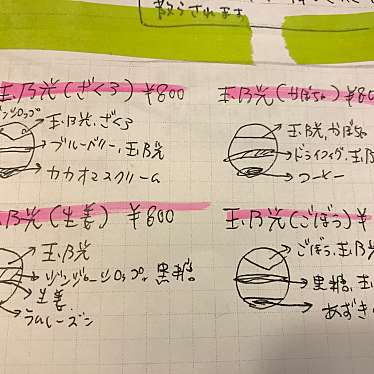 散らされます
玉乃光(ざくろ)¥800
玉乃光、ざくろ
ブルーベリー、玉乃光
カカオマスクリーム
玉乃光(かぼちゃ)¥80
玉乃光、かぼちゃ
ドライイチジク、玉乃
コーヒー
玉乃光(生姜)¥800
玉乃光
ジンジャーシロップ、黒糖
生姜
ラムレーズン
玉乃光(ごぼう)¥
ごぼう、玉乃光
黒糖、玉
あずき